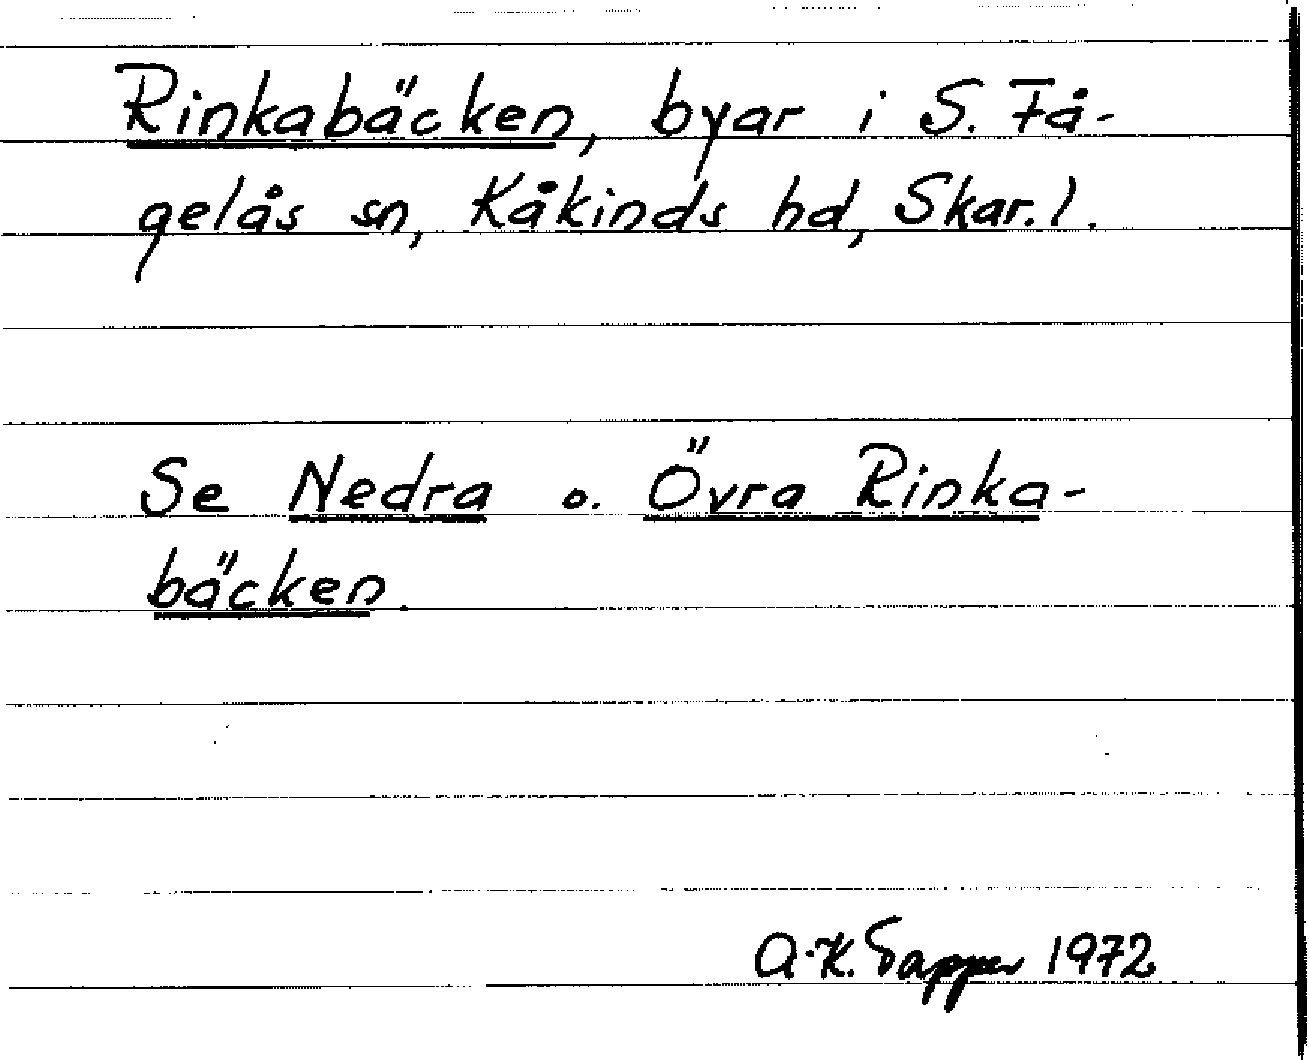 Rinkabäcken, byar i S. Få-
gelås sn, Kåkinds hd, Skar. l.
Se Nedra o. Övra Rinka-
bäcken.
A-K. Sapper 1972